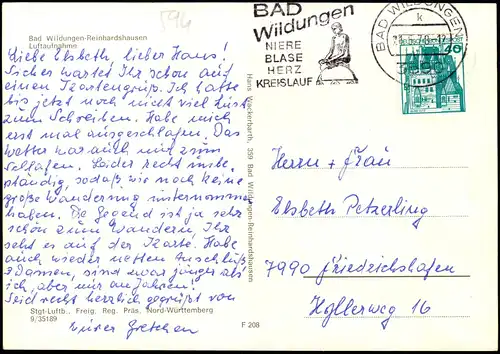 594
Bad Wildungen-Reinhardshausen
Luftaufnahme
Liebe Elsbeth, lieber Hans!
Sicher wartet Ihr schon auf
einen Kartengruß. Ich hatte
bis jetzt noch nicht viel Lust
zum Schreiben. Habe mich
erst mal ausgeschlafen. Das
Wetter war auch mit zum
Schlafen. Leider recht unbe-
ständig, sodaß wir noch keine
große Wanderung unternommen
haben. Die Gegend ist ja sehr
schön zum Wandern, Ihr
seht es auf der Karte. Habe
auch wieder netten Anschluß
Damen, sind zwar jünger als
ich, aber nur an Jahren!
Seid recht herzlich gegrüßt von
Eurer Gretchen
Stgt-Luftb., Freig. Reg. Präs. Nord-Württemberg
9/35189
F 208
Hans Wackerbarth, 359 Bad Wildungen-Reinhardshausen
BAD
Wildungen
NIERE
BLASE
HERZ
KREISLAUF
BAD WILDUNGEN
k
40
Herrn + Frau
Elsbeth Petzerling
7990 Friedrichshafen
Hollerweg 16